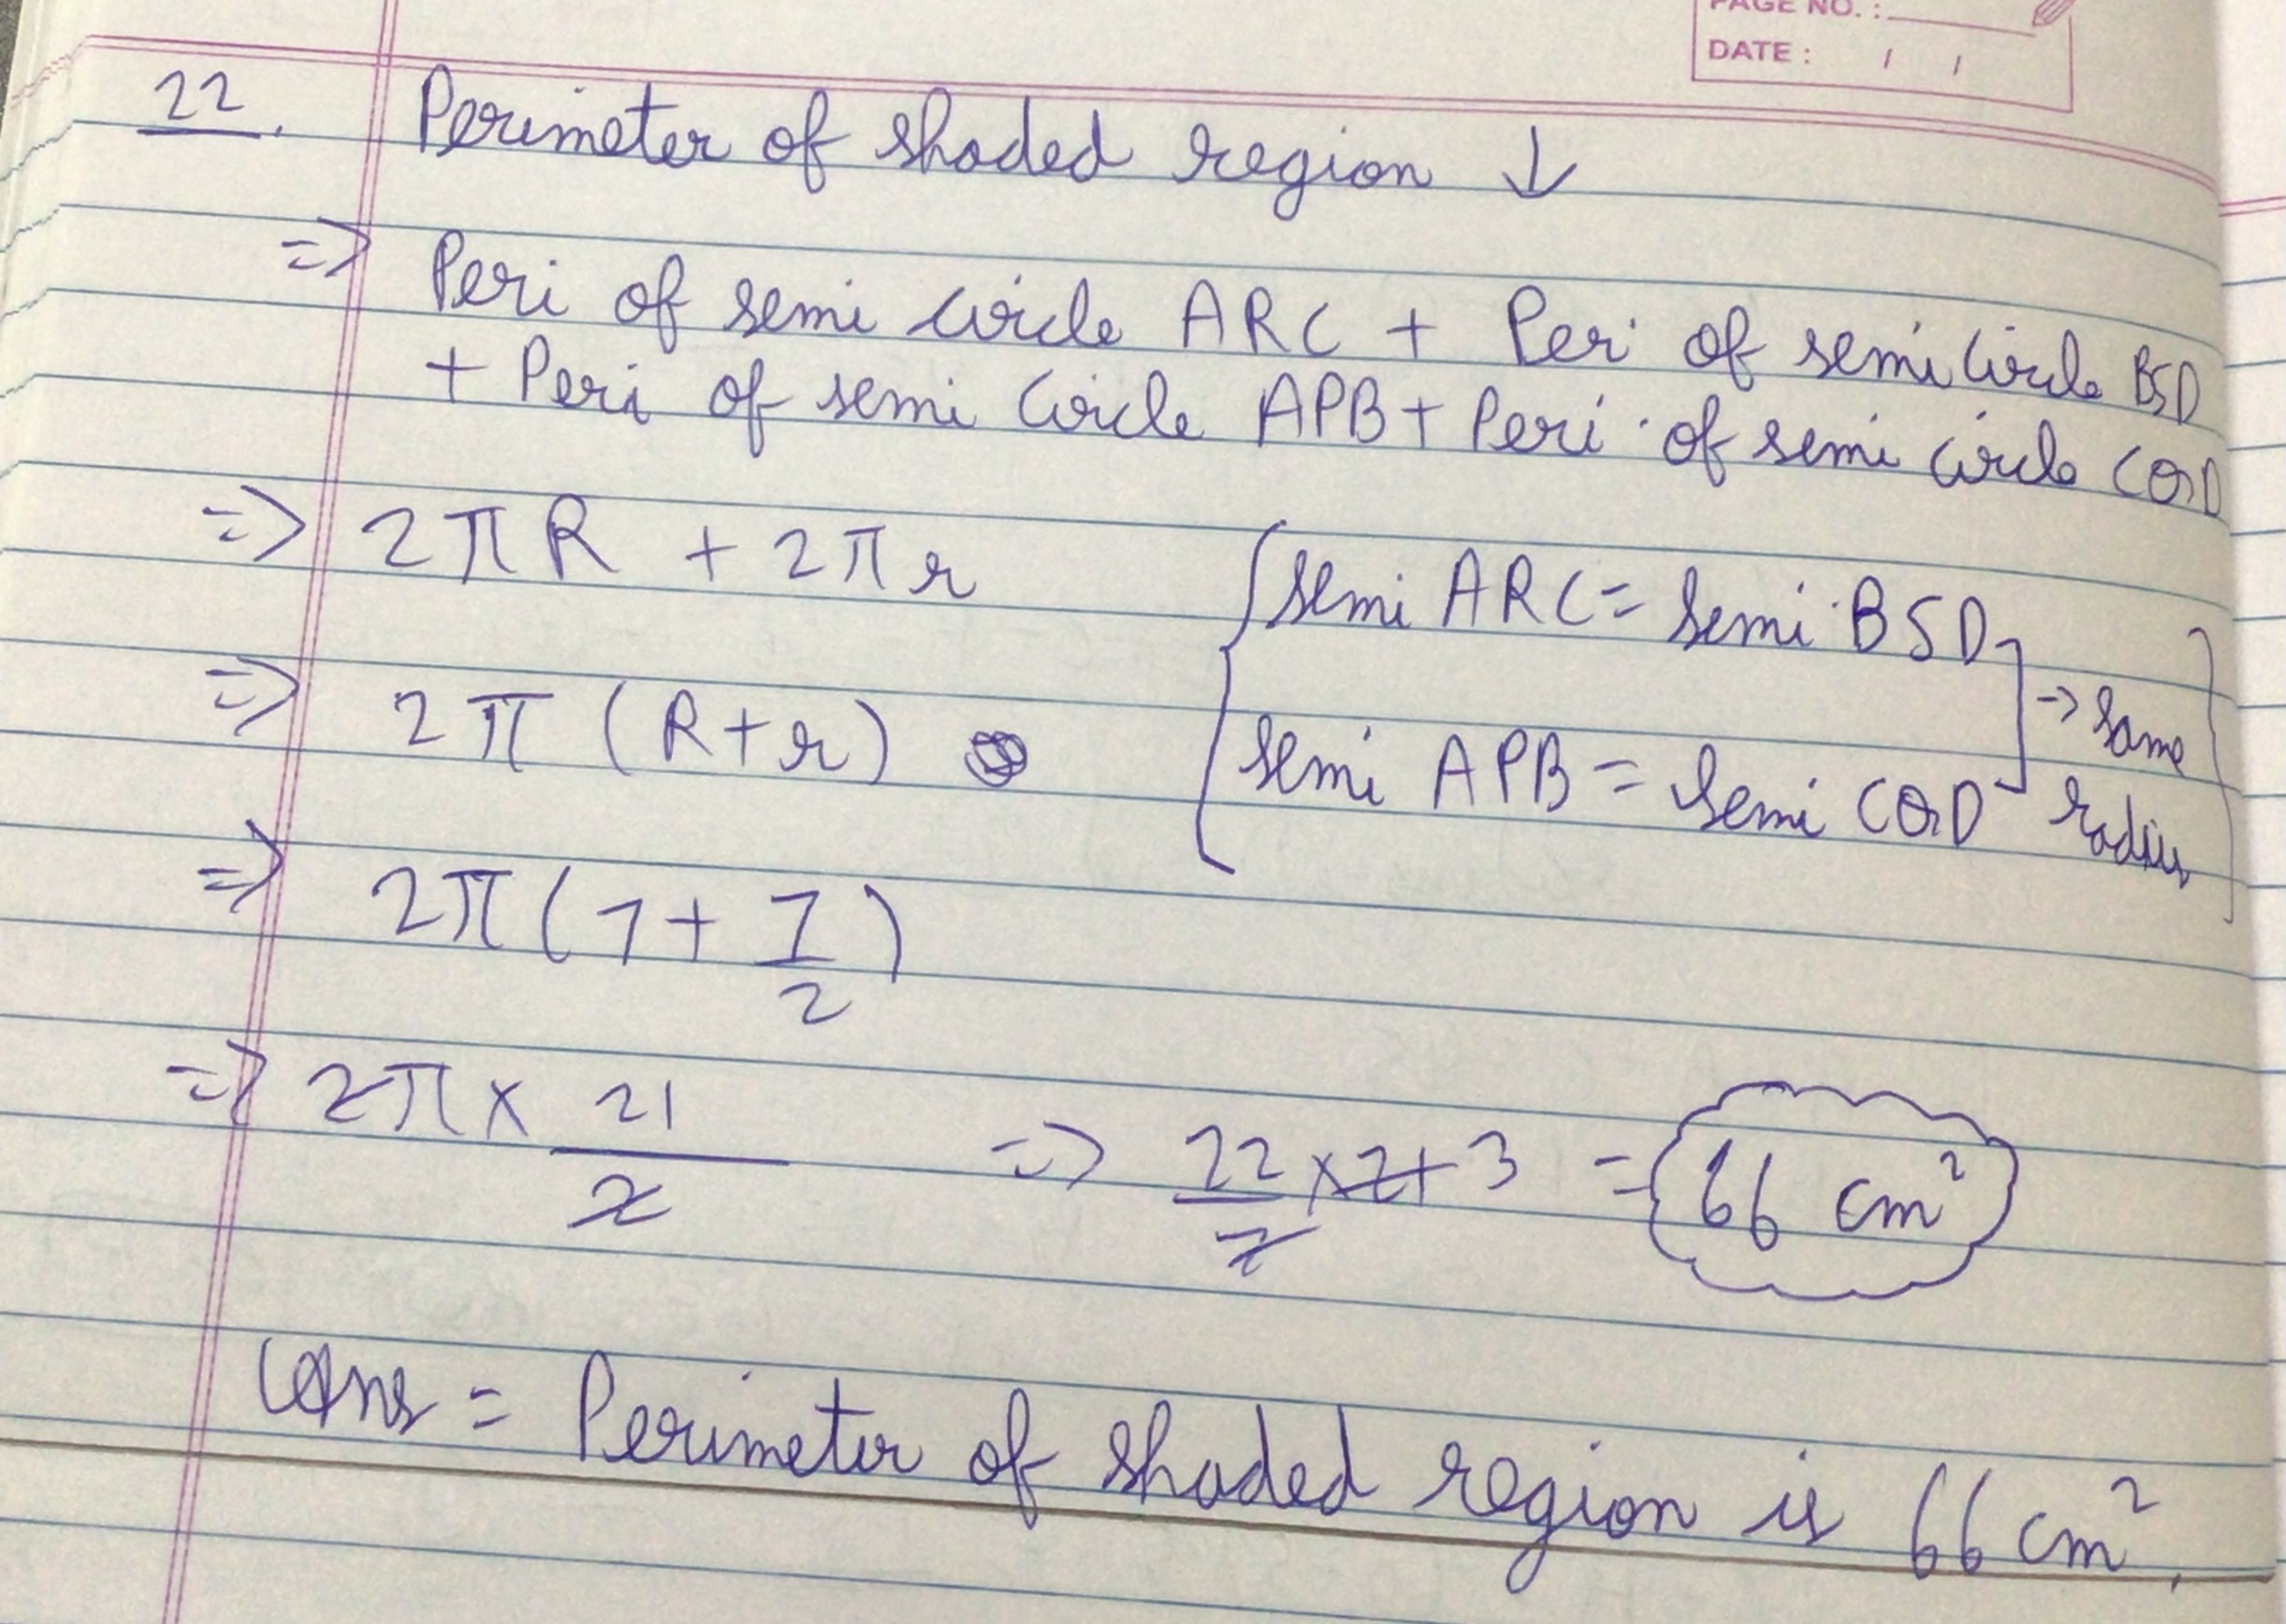 PAGE NO. :
DATE : / /
22. Perimeter of shaded region ↓
=> Peri of semi circle ARC + Peri of semi circle BSD
+ Peri of semi circle APB + Peri. of semi circle CQD
=> 2πR + 2πr
{semi ARC = semi BSD
=> 2π (R+r)
semi APB = semi CQD] -> same radius}
=> 2π(7 + 7/2)
=> 2π x 21/2 => 22/7 x 21 3 = 66 cm²
Ans = Perimeter of shaded region is 66 cm².